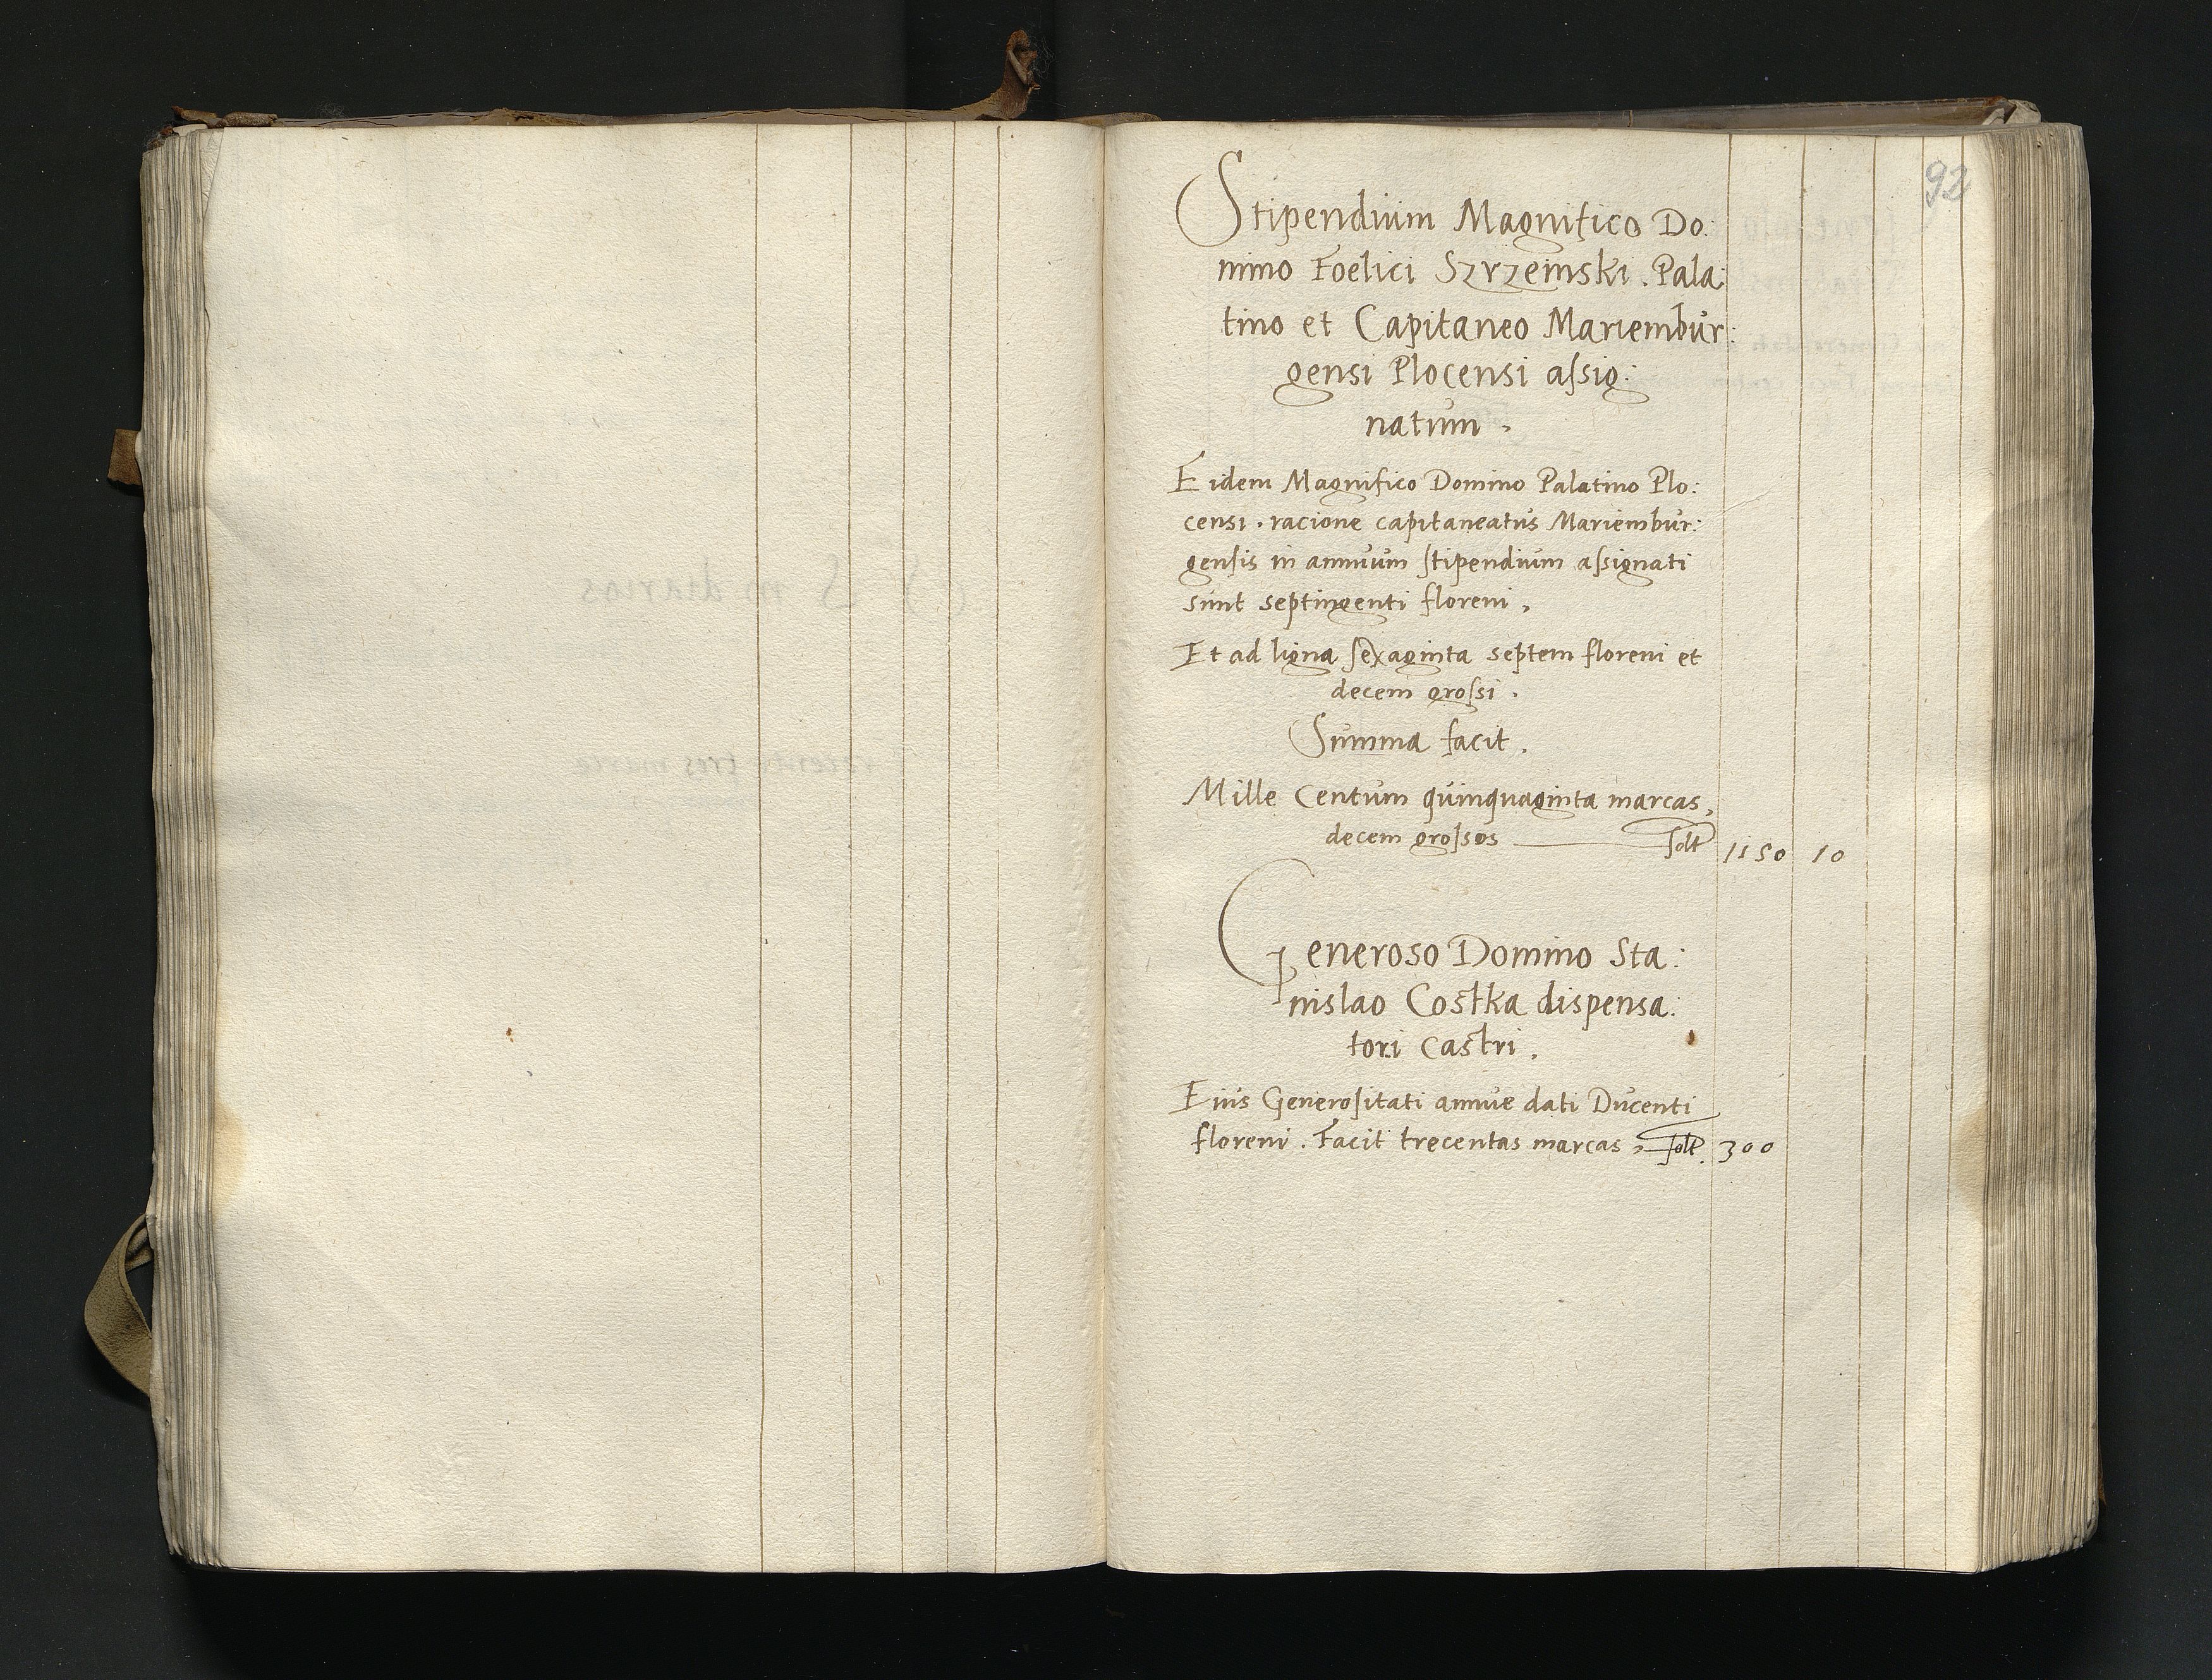 92
Stipendium Magnifico Do:
mino Foelici Szrzemski. Pala:
tino et Capitaneo Mariembur:
gensi Plocensi aſsig:
natum.
Eidem Magnifico Domino Palatino Plo:
censi. racione capitaneatus Mariembur:
genſis in annuum ſtipendium aſsignati
sunt septingenti floreni,
Et ad ligna ſexaginta septem floreni et
decem groſsi.
Summa facit.
Mille Centum quinquaginta marcas,
decem groſsos ſolt 1150 10
Generoso Domino Sta:
nislao Costka dispensa:
tori Castri.
Eius Generoſitati annue dati Ducenti
floreni. Facit trecentas marcas, ſolt. 300